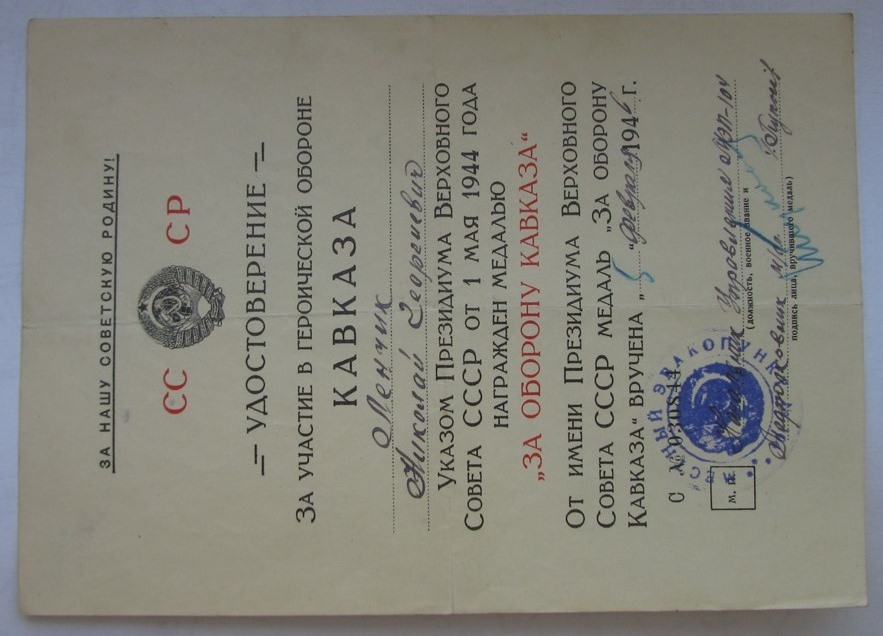 ЗА НАШУ СОВЕТСКУЮ РОДИНУ!
СС СР
УДОСТОВЕРЕНИЕ
ЗА УЧАСТИЕ В ГЕРОИЧЕСКОЙ ОБОРОНЕ
КАВКАЗА
Ленчик
Николай Георгиевич
УКАЗОМ ПРЕЗИДИУМА ВЕРХОВНОГО
СОВЕТА СССР ОТ 1 МАЯ 1944 ГОДА
НАГРАЖДЕН МЕДАЛЬЮ
„ЗА ОБОРОНУ КАВКАЗА“
ОТ ИМЕНИ ПРЕЗИДИУМА ВЕРХОВНОГО
СОВЕТА СССР МЕДАЛЬ „ЗА ОБОРОНУ
КАВКАЗА“ ВРУЧЕНА „5“ февраля 1946 Г.
С № 030844
М. П.
Начальник Управления МЭП-104
(должность, военное звание и
Подполковник м/с
подпись лица, вручившего медаль)